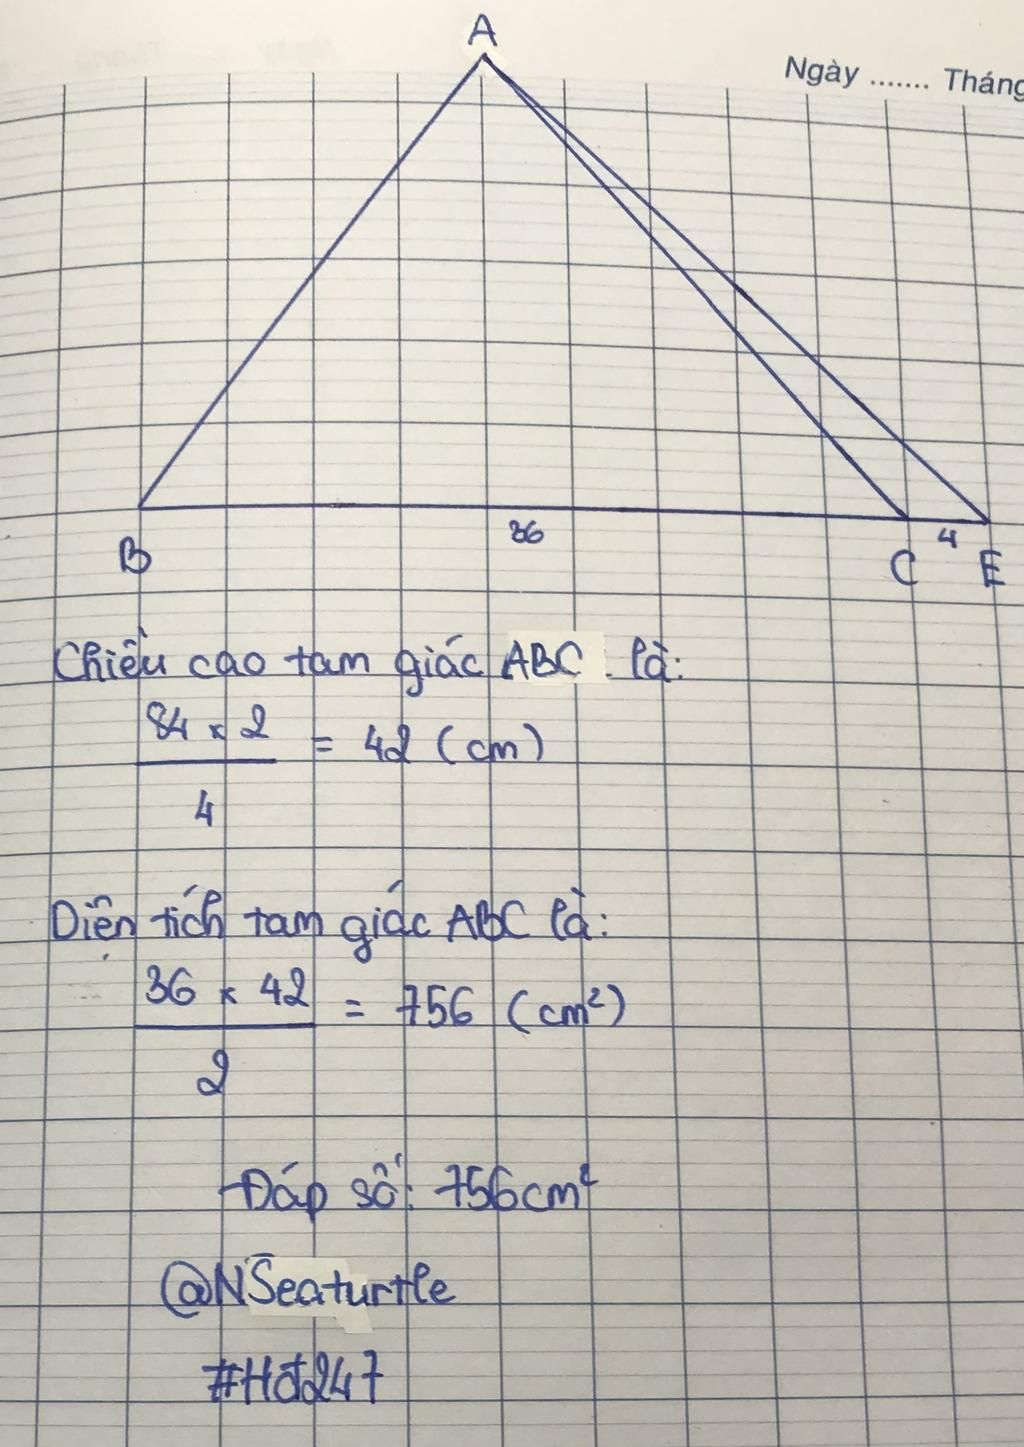 A
Ngày ....... Tháng
36
4
B
C
E
Chiều cao tam giác ABC là:
84 x 2
= 42 (cm)
4
Diện tích tam giác ABC là:
36 x 42
= 756 (cm²)
2
Đáp số: 756cm²
@NSeaturtle
#Hđ247